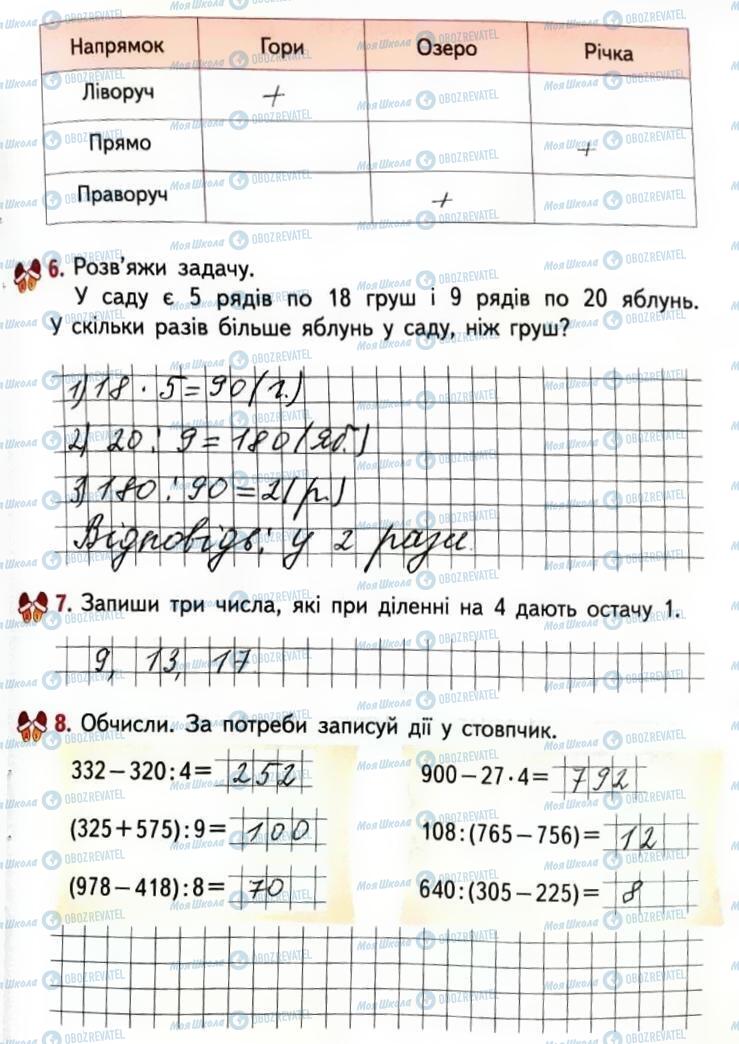 Напрямок Гори Озеро Річка
Ліворуч +
Прямо +
Праворуч +
6. Розв'яжи задачу.
У саду є 5 рядів по 18 груш і 9 рядів по 20 яблунь.
У скільки разів більше яблунь у саду, ніж груш?
1) 18 · 5 = 90 (г.)
2) 20 : 9 = 180 (яб.)
3) 180 : 90 = 2 (р.)
Відповідь: у 2 рази.
7. Запиши три числа, які при діленні на 4 дають остачу 1.
9, 13, 17.
8. Обчисли. За потреби записуй дії у стовпчик.
332 – 320 : 4 = 252 900 – 27 · 4 = 792
(325 + 575) : 9 = 100 108 : (765 – 756) = 12
(978 – 418) : 8 = 70 640 : (305 – 225) = 8
Моя Школа OBOZREVATEL